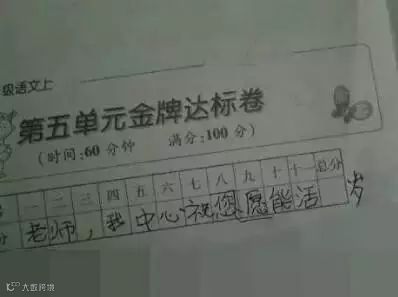 级语文上
第五单元金牌达标卷
(时间:60分钟 满分:100分)
一 二 三 四 五 六 七 八 九 十 十一 总分
分 老师,我中心祝您愿能活 岁
大数跨境